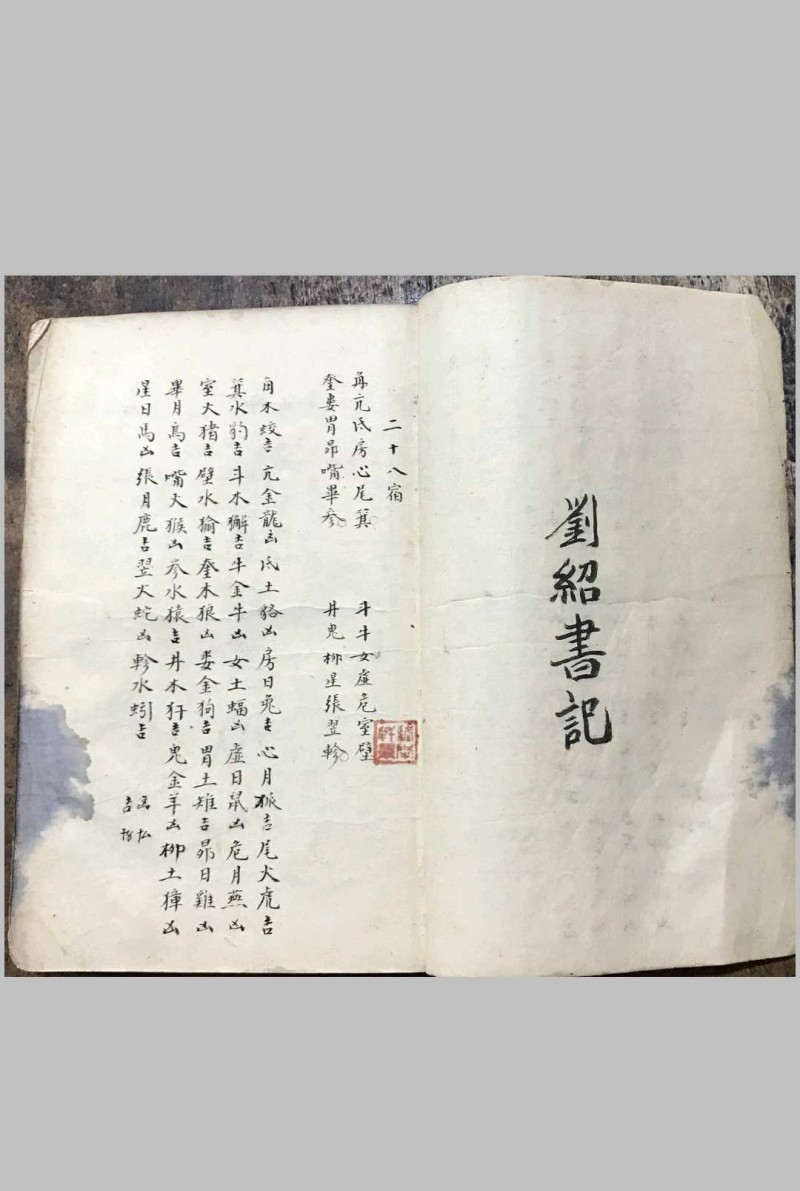 劉紹書記
二十八宿
角亢氐房心尾箕　斗牛女虛危室壁
奎婁胃昴嘴畢參　井鬼柳星張翌軫
角木蛟吉亢金龍凶氐土貉凶房日兔吉心月狐吉尾火虎吉
箕水豹吉斗木獬吉牛金牛凶女土蝠凶虛日鼠凶危月燕凶
室火猪吉壁水㺄吉奎木狼凶婁金狗吉胃土雉吉昴日雞凶
畢月烏吉嘴火猴凶參水猿吉井木犴吉鬼金羊凶柳土獐凶
星日馬凶張月鹿吉翌火蛇凶軫水蚓吉